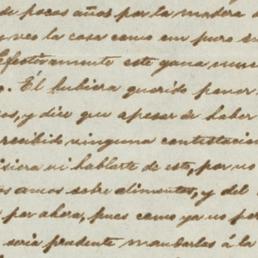 de pocos años por la madera d
veo la cosa como em puro su
Efectivamente este gana muc
Él hubiera querido poner
os, y dice que apesar de haber
recibido ninguna contestacion
isiera ni hablarte de esto, por no
os amos sobre alimentos, y del
por ahora, pues como ya no po
seria prudente mandarlas á la